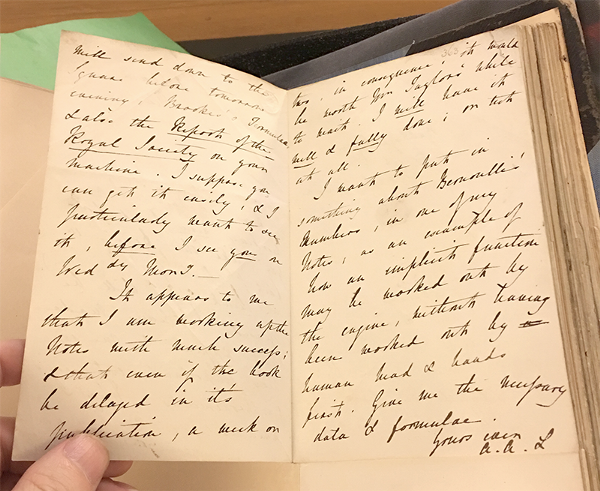 will send down to the
Square before tomorrow
evening, Brooke's Formulae
& also the Report of the
Royal Society on your
machine. I suppose you
can get it easily, & I
particularly want to see
it, before I see you on
Wed dy Morng.
It appears to me
that I am working up the
Notes with much success;
& that even if the book
be delayed in it's
publication, a week or
two, in consequence, it would
be worth Mr Taylor's while
to wait. I will have it
well & fully done; or not
at all.
I want to put in
something about Bernoulli's
Numbers, in one of my
Notes, as an example of
how an implicit function
may be worked out by
the engine, without having
been worked out by
human head & hands
first. Give me the necessary
data & formulae.
Yours ever
A. A. L